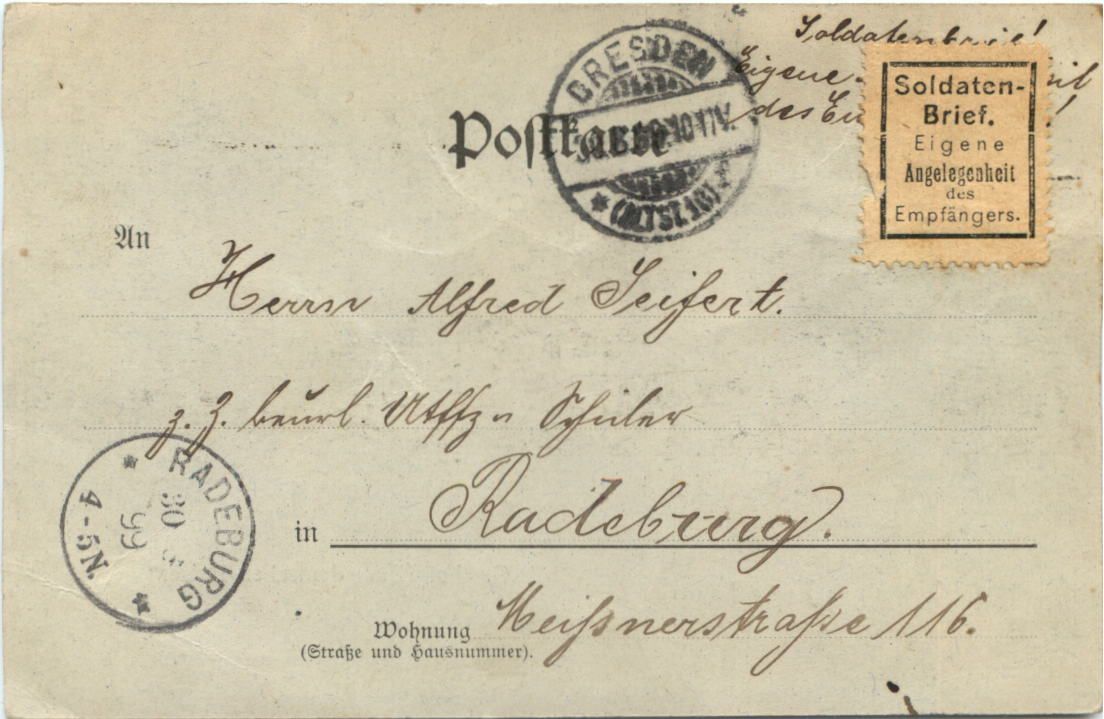 Soldatenbrief!
Eigene
des
Soldaten-
Brief.
Eigene
Angelegenheit
des
Empfängers.
Postkarte
DRESDEN
10-11V.
* (ALTST. 16) *
An
Herrn Alfred Seifert.
z. Z. beurl. Utffz= Schüler
RADEBURG
30
99
4-5N.
in Radeburg.
Wohnung Meißnerstraße 116.
(Straße und Hausnummer).